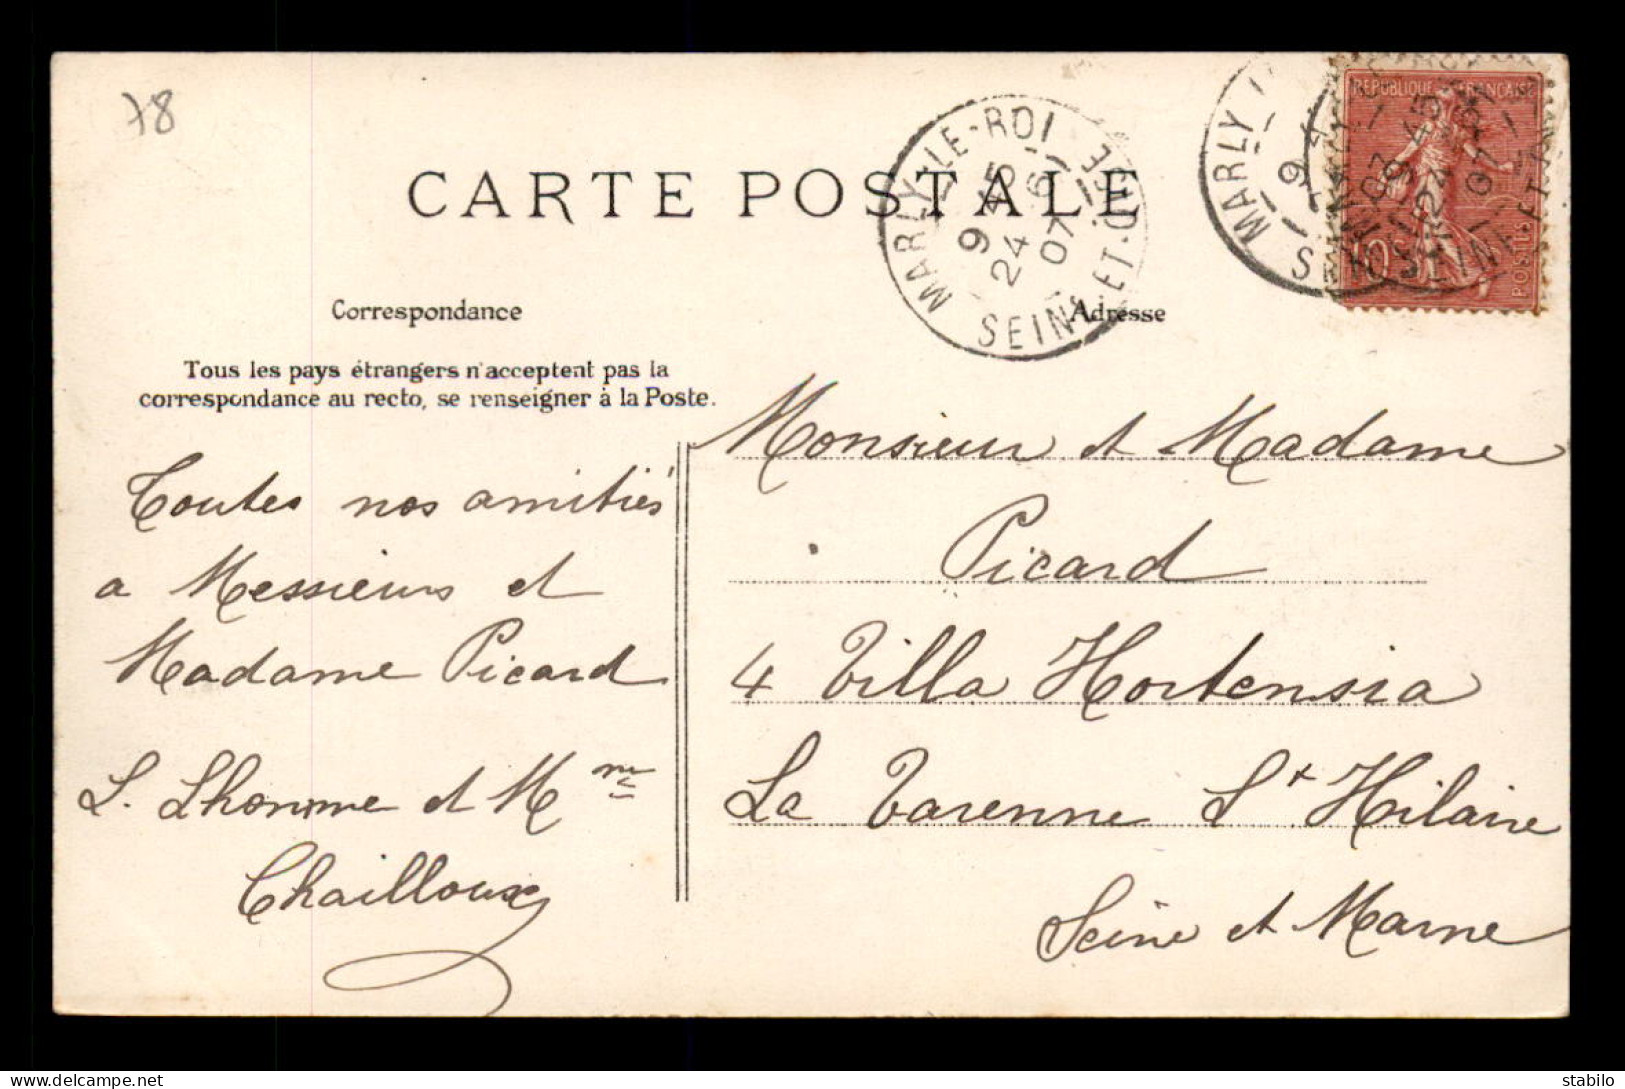 78
CARTE POSTALE
MARLY-LE-ROI
9 45
24 6
07
SEINE-ET-OISE
REPUBLIQUE FRANÇAISE
10c
POSTES
Correspondance
Adresse
Tous les pays étrangers n'acceptent pas la
correspondance au recto, se renseigner à la Poste.
Toutes nos amitiés
a Messieurs et
Madame Picard
L. Lhomme et Mme
Chailloux
Monsieur et Madame
Picard
4 Villa Hortensia
La Varenne St Hilaire
Seine et Marne
delcampe.net
stabilo